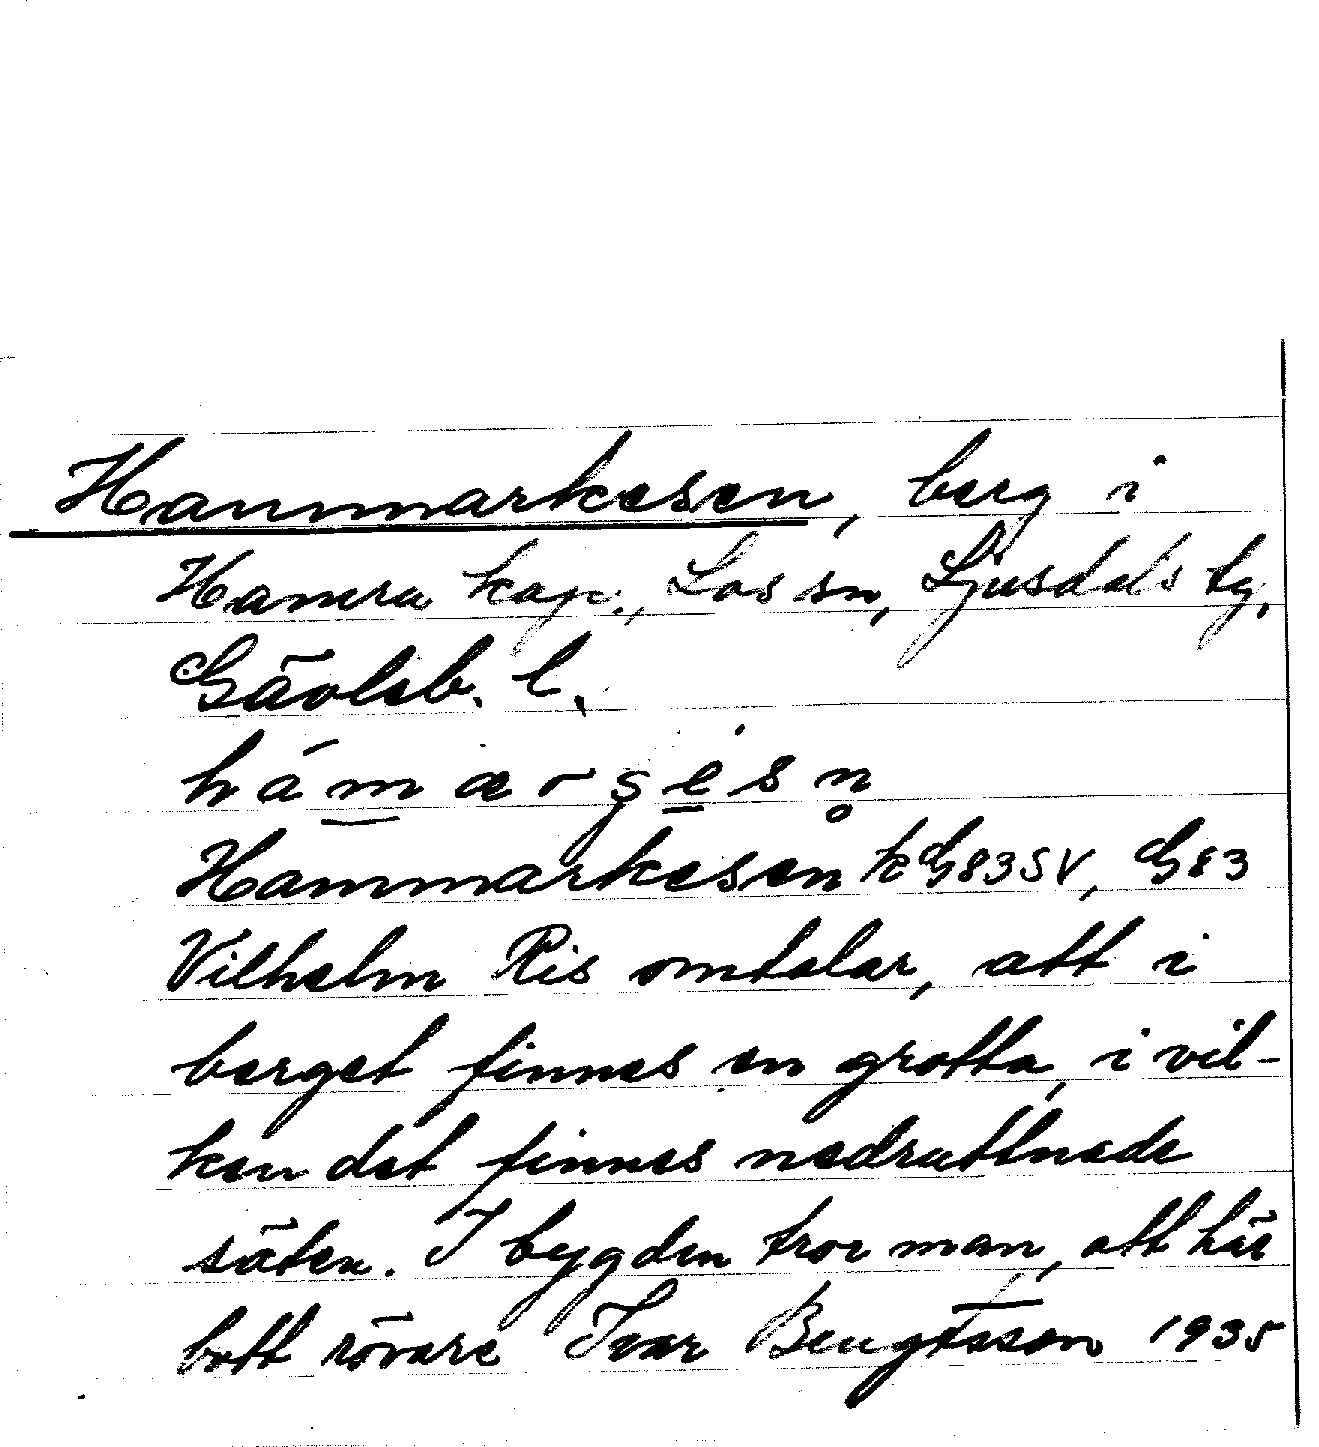 Hammarkesen, berg i
Hamra kap., Los sn, Ljusdals tg,
Gävleb. l.
Hammarkesen kG83SV, G83
Vilhelm Ris omtalar, att i
berget finnes en grotta, i vil-
ken det finnes nedruttnade
säten. I bygden tror man, att här
bott rövare Ivar Bengtsson 1935